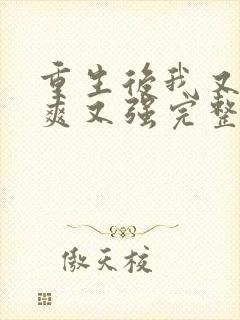 重生后我又
爽又强完整
傲天校